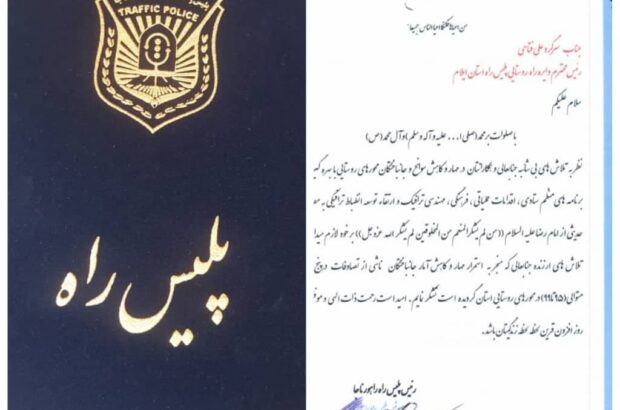 TRAFFIC POLICE
پلیس راه
جناب سرگرد علی فتاحی
رئیس محترم دایره راه روستایی پلیس راه استان ایلام
سلام علیکم
با صلوات بر محمد (صلی ا... علیه و آله و سلم) و آل محمد (ص)
نظر به تلاش های بی شائبه جنابعالی و همکارانتان در مهار و کاهش سوانح و جانباختگان محورهای روستایی با بهره گیر
برنامه های منظم ستادی ، اقدامات عملیاتی ، فرهنگی ، مهندسی ترافیک و ارتقاء توسعه انضباط ترافیکی به
حدیثی از امام رضا علیه السلام ((من لم یشکر المنعم من المخلوقین لم یشکر الله عز و جل)) بر خود لازم میدا
تلاش های ارزنده جنابعالی که منجر به استمرار مهار و کاهش آمار جانباختگان ناشی از تصادفات در پنج
متوالی (۹۵ تا ۹۹) در محورهای روستایی استان گردیده است تشکر نمایم . امید است رحمت ذات الهی و موف
روز افزون قرین لحظه لحظه زندگیتان باشد.
رئیس پلیس راه راهور ناجا